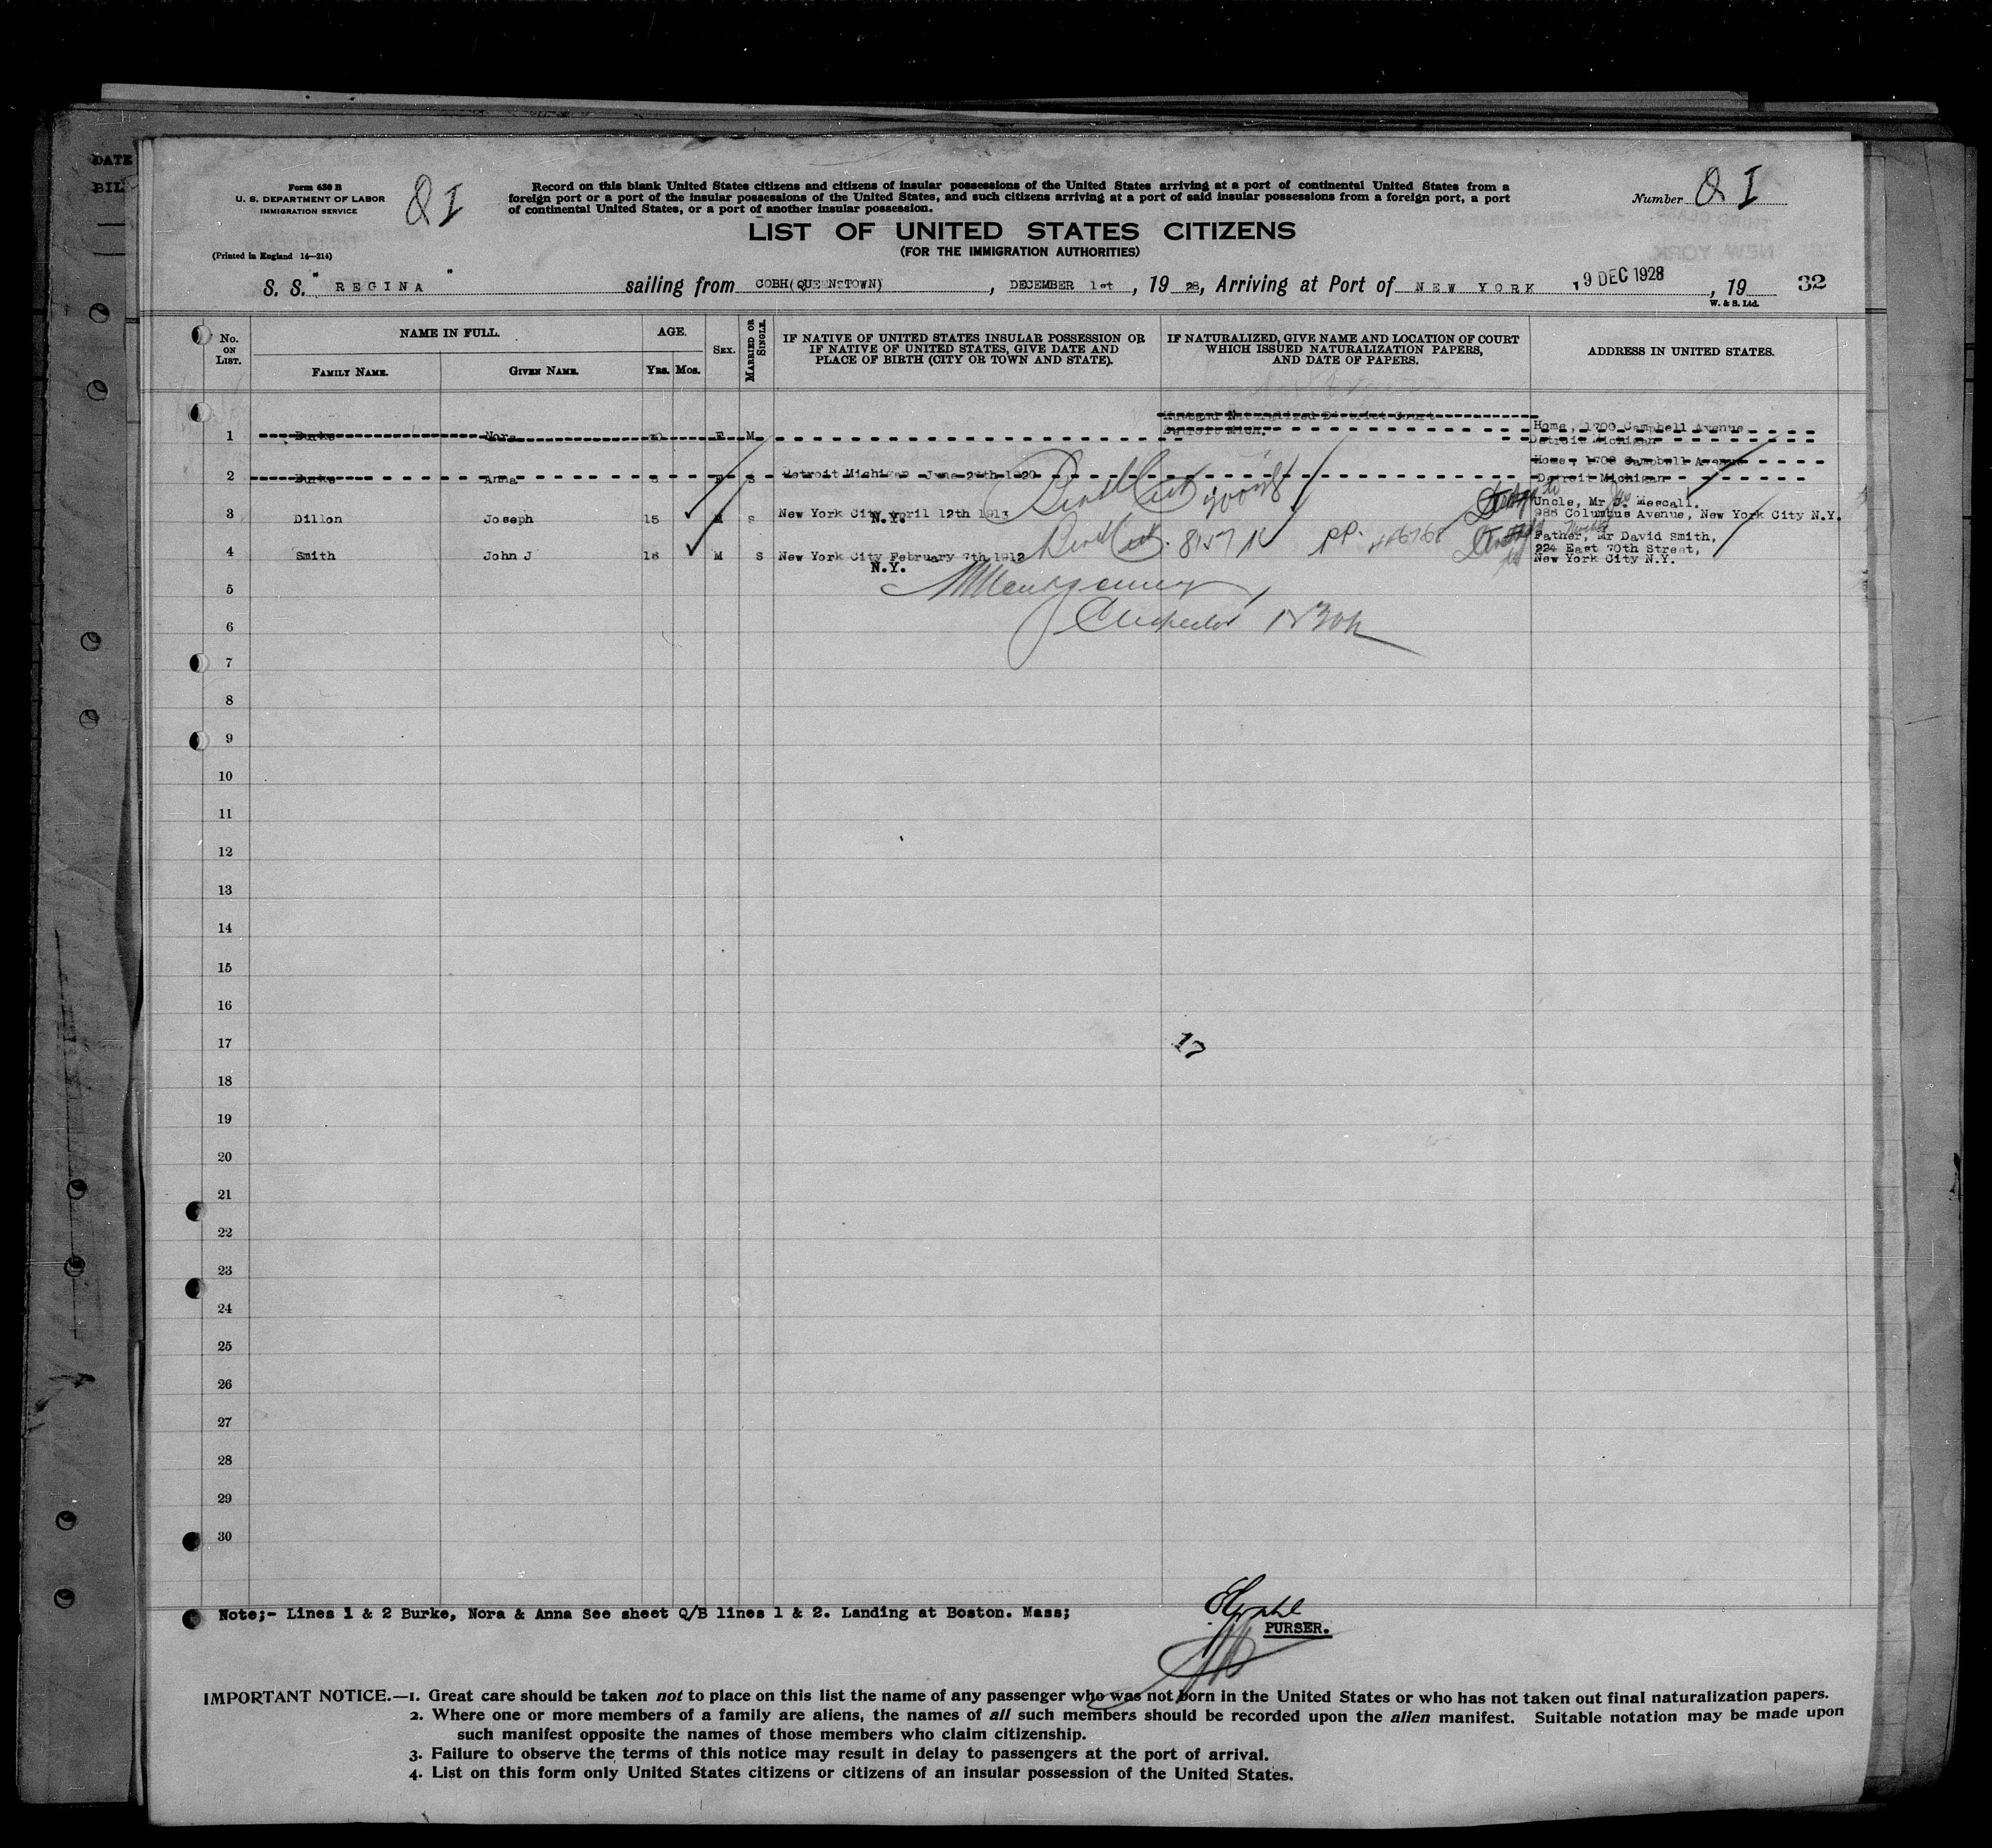 DATE
BIL
Form 630 B
U. S. DEPARTMENT OF LABOR
IMMIGRATION SERVICE
(Printed in England 14—214)
QI
Record on this blank United States citizens and citizens of insular possessions of the United States arriving at a port of continental United States from a
foreign port or a port of the insular possessions of the United States, and such citizens arriving at a port of said insular possessions from a foreign port, a port
of continental United States, or a port of another insular possession.
Number QI
LIST OF UNITED STATES CITIZENS
(FOR THE IMMIGRATION AUTHORITIES)
S. S. "REGINA" sailing from COBH(QUEENSTOWN), DECEMBER 1st, 19 28, Arriving at Port of NEW YORK 9 DEC 1928, 19 32
W. & S. Ltd.
No. ON LIST.
NAME IN FULL.
FAMILY NAME.
GIVEN NAME.
AGE.
YRS. MOS.
SEX.
MARRIED OR SINGLE.
IF NATIVE OF UNITED STATES INSULAR POSSESSION OR
IF NATIVE OF UNITED STATES, GIVE DATE AND
PLACE OF BIRTH (CITY OR TOWN AND STATE).
IF NATURALIZED, GIVE NAME AND LOCATION OF COURT
WHICH ISSUED NATURALIZATION PAPERS,
AND DATE OF PAPERS.
ADDRESS IN UNITED STATES.
Husband Naturalized District Court
Detroit Mich.
1 Burke Nora F M Home, 1700 Campbell Avenue
Detroit Michigan
Home, 1700 Campbell Avenue
2 Burke Anna F S Detroit Michigan June 24th 1920 Detroit Michigan
3 Dillon Joseph 15 M S New York City April 12th 1913 Birth Cert Uncle, Mr Mescall.
N.Y. 988 Columbus Avenue, New York City N.Y.
4 Smith John J 16 M S New York City February 7th 1912 Birth Cert. PP. Father, Mr David Smith,
N.Y. 224 East 70th Street,
New York City N.Y.
5
Montgomery
6
Inspector
7
8
9
10
11
12
13
14
15
16
17
17
18
19
20
21
22
23
24
25
26
27
28
29
30
Note;- Lines 1 & 2 Burke, Nora & Anna See sheet Q/B lines 1 & 2. Landing at Boston. Mass;
PURSER.
IMPORTANT NOTICE.—1. Great care should be taken not to place on this list the name of any passenger who was not born in the United States or who has not taken out final naturalization papers.
2. Where one or more members of a family are aliens, the names of all such members should be recorded upon the alien manifest. Suitable notation may be made upon
such manifest opposite the names of those members who claim citizenship.
3. Failure to observe the terms of this notice may result in delay to passengers at the port of arrival.
4. List on this form only United States citizens or citizens of an insular possession of the United States.